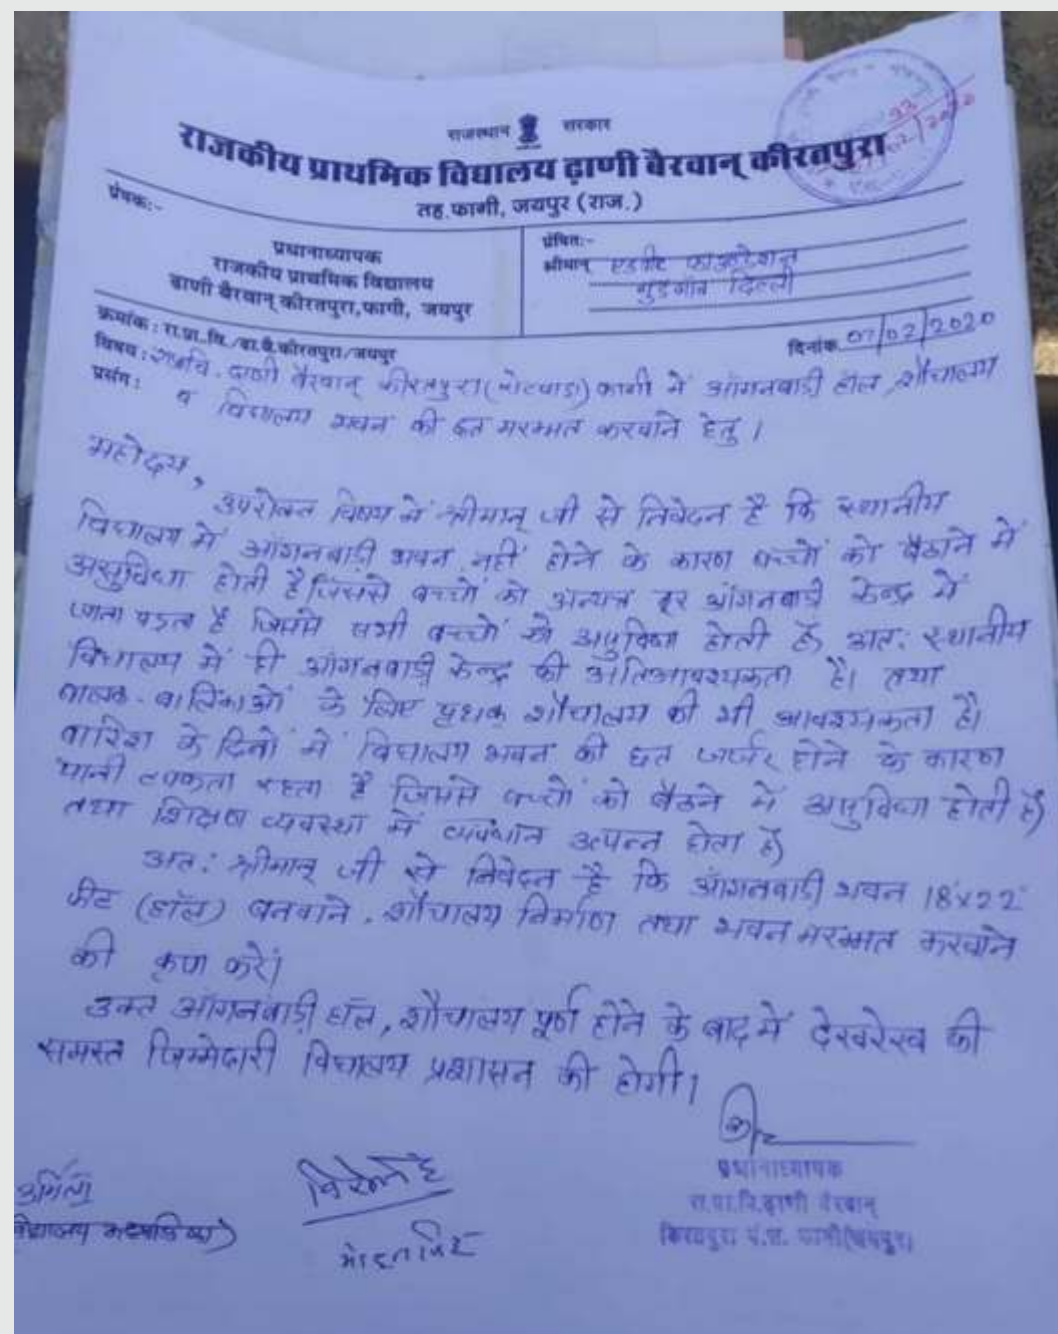 राजस्थान सरकार
राजकीय प्राथमिक विद्यालय ढ़ाणी बैरवान् कीरतपुरा
तह.फागी, जयपुर (राज.)
प्रेषक:-
प्रधानाध्यापक
राजकीय प्राथमिक विद्यालय
ढाणी बैरवान् कीरतपुरा,फागी, जयपुर
प्रेषित:-
श्रीमान् एडवीट फाऊण्डेशन
गुडगांव दिल्ली
क्रमांक : रा.प्रा.वि./ढा.बै.कीरतपुरा/जयपुर
दिनांक 07/02/2020
विषय : राप्रावि. ढाणी बैरवान् कीरतपुरा फागी में आंगनबाडी हॉल, शौचालय
प्रसंग : व विद्यालय भवन की छत मरम्मत करवाने हेतु ।
महोदय,
उपरोक्त विषय में श्रीमान् जी से निवेदन है कि स्थानीय
विद्यालय में आंगनबाडी भवन नहीं होने के कारण बच्चों को बैठाने में
असुविधा होती है जिससे बच्चों को अन्यत्र दूर आंगनबाडी केन्द्र में
जाता पडता है जिससे सभी बच्चों को असुविधा होती है, अत: स्थानीय
विद्यालय में ही आंगनबाडी केन्द्र की अतिआवश्यकता है। तथा
बालक-बालिकाओं के लिए पृथक् शौचालय की भी आवश्यकता है।
बारिश के दिनों में विद्यालय भवन की छत जर्जर होने के कारण
पानी टपकता रहता है जिससे बच्चों को बैठने में असुविधा होती है)
तथा शिक्षण व्यवस्था में व्यवधान उत्पन्न होता है)
अत: श्रीमान् जी से निवेदन है कि आंगनबाडी भवन 18x22
फीट (हॉल) बनवाने, शौचालय निर्माण तथा भवन मरम्मत करवाने
की कृपा करें।
उक्त आंगनबाडी हॉल, शौचालय पूर्ण होने के बाद में देखरेख की
समस्त जिम्मेदारी विद्यालय प्रशासन की होगी।
प्रधानाध्यापक
रा.प्रा.वि.ढ़ाणी बैरवान्
किरतपुरा पं.स. फागी(जयपुर)